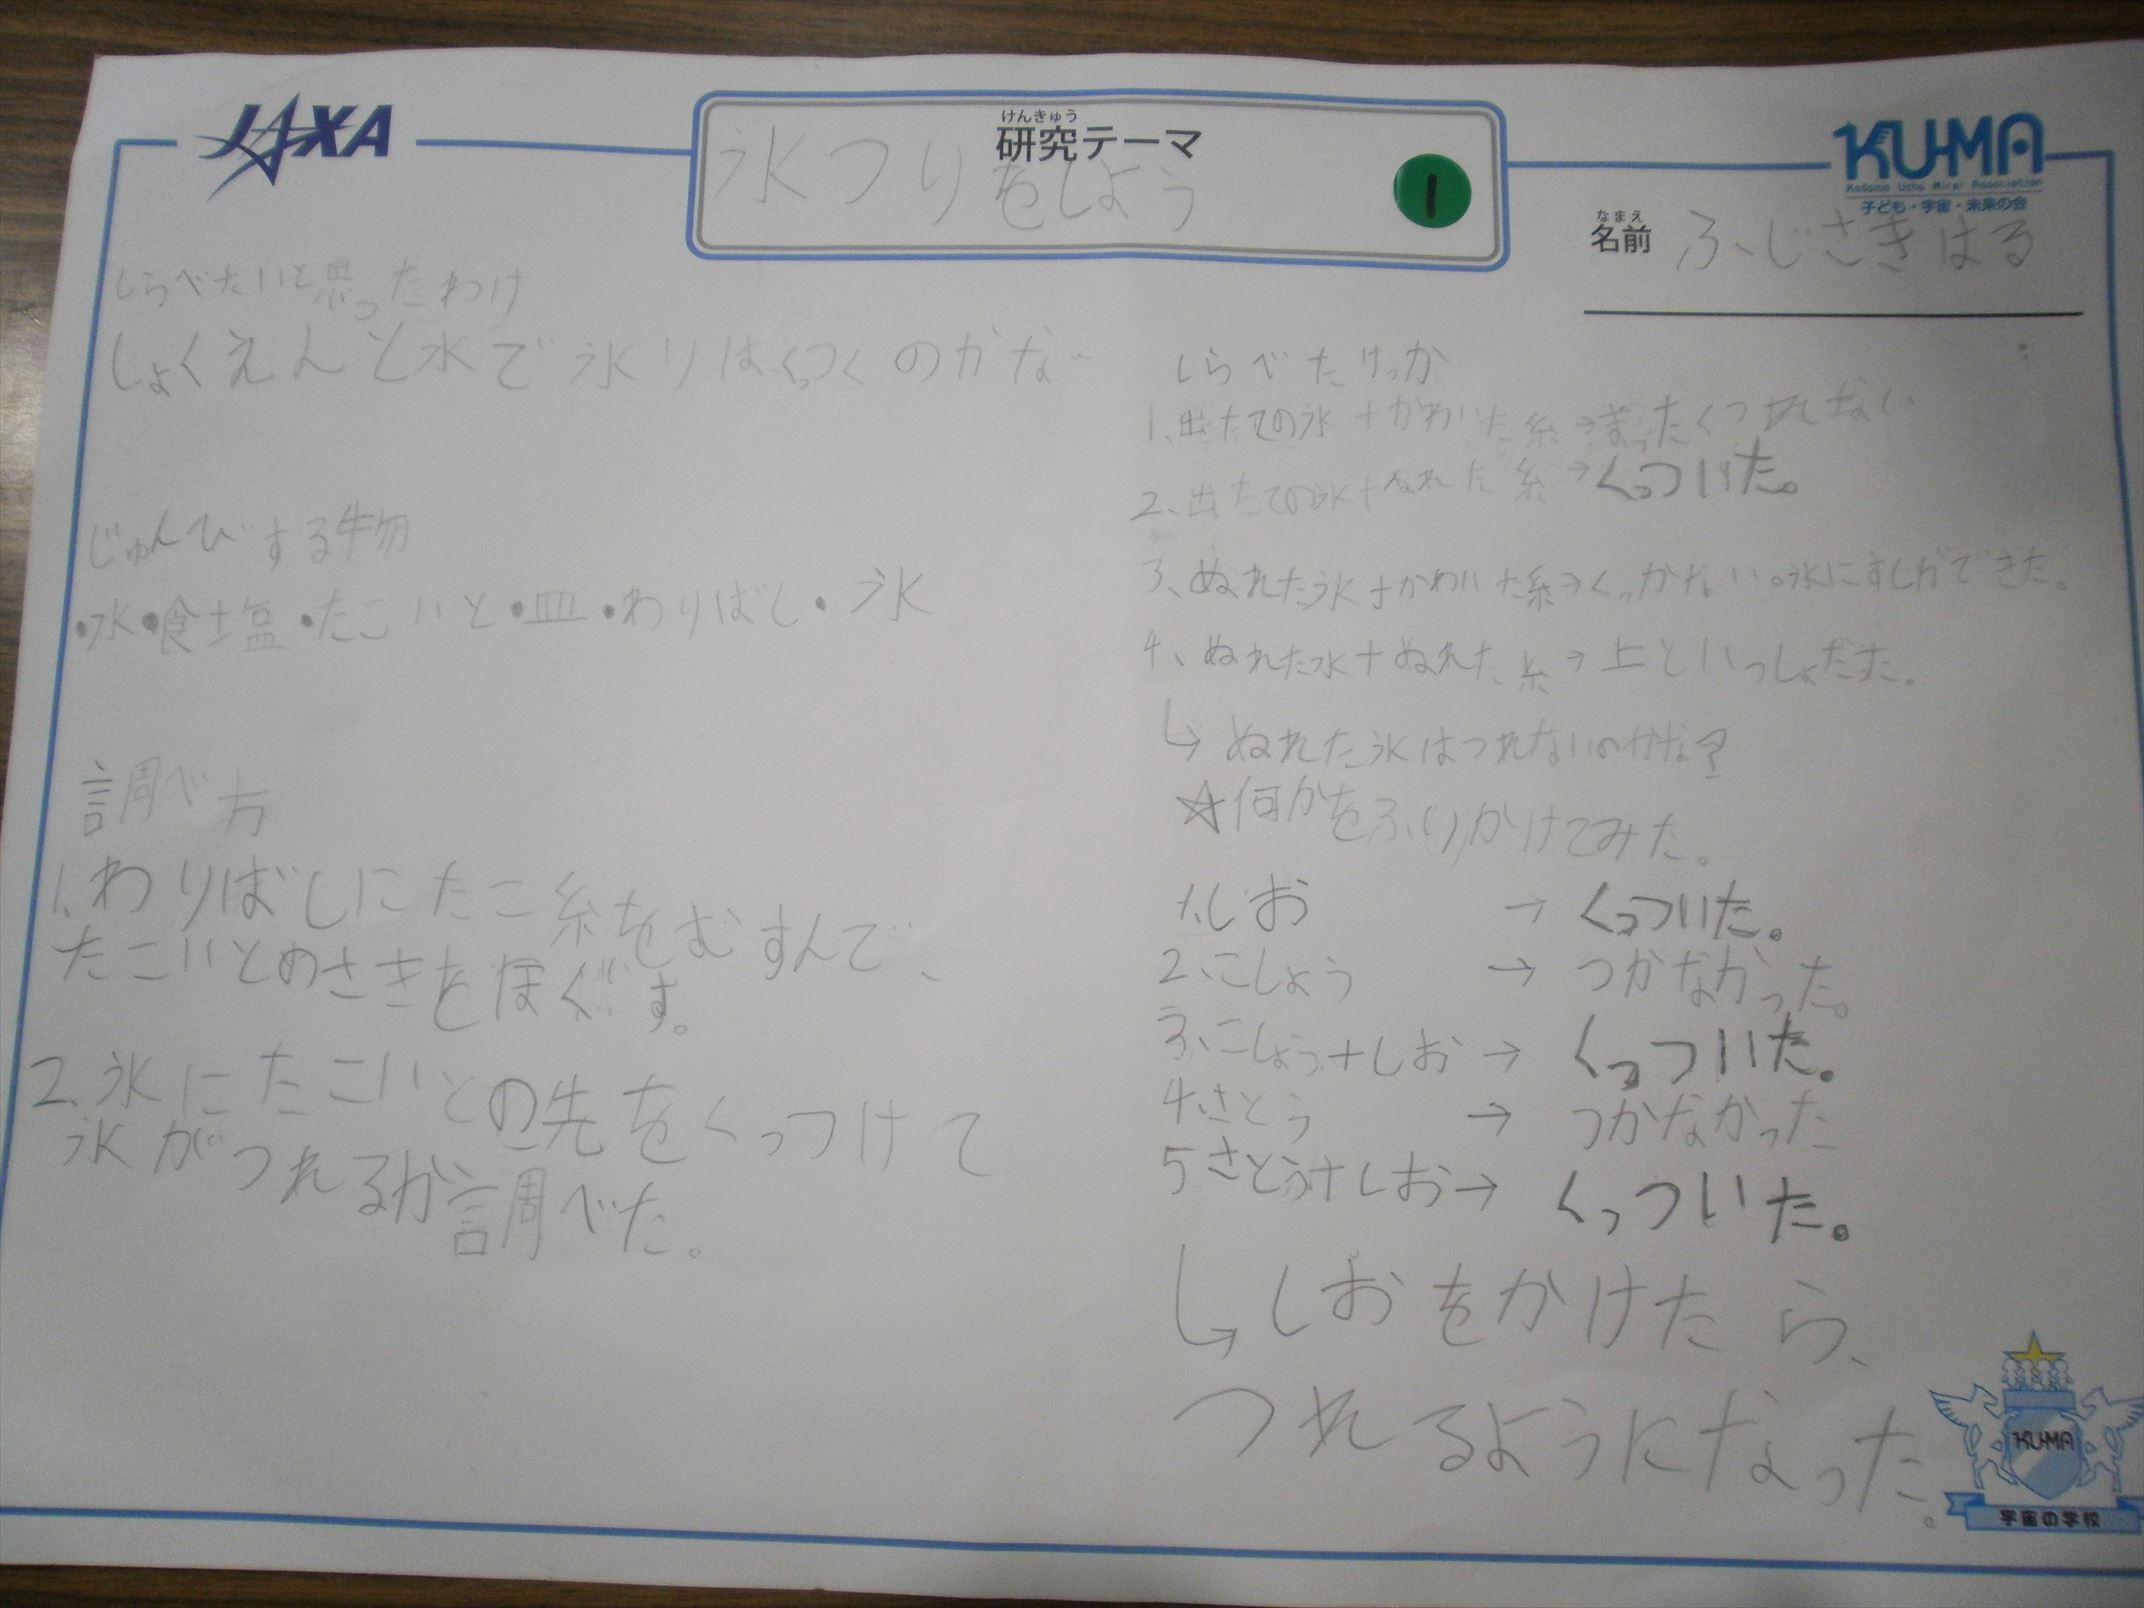 JAXA
けんきゅう
研究テーマ
氷つりをしよう
1
KU-MA
Kodomo Uchu Mirai Association
子ども・宇宙・未来の会
なまえ
名前 ふじさきはる
しらべたいと思ったわけ
しょくえんと水で氷りはくっつくのかなー
じゅんびする物
・水・食塩・たこいと・皿・わりばし・氷
調べ方
1、わりばしにたこ糸をむすんで、
たこいとのさきをほぐす。
2、氷にたこいとの先をくっつけて
氷がつれるか調べた。
しらべたけっか
1、出たての氷+かわいた糸→まったくつれない
2、出たての氷+ぬれた糸→くっついた。
3、ぬれた氷+かわいた糸→くっつかない。氷にすじができた。
4、ぬれた氷+ぬれた糸→上といっしょだった。
↳ぬれた氷はつれないのかな?
☆何かをふりかけてみた。
1、しお → くっついた。
2、こしょう → つかなかった。
3、こしょう+しお → くっついた。
4、さとう → つかなかった
5さとう+しお→ くっついた。
↳しおをかけたら、
つれるようになった。
KU-MA
宇宙の学校